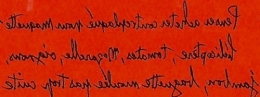 Penser acheter contreplaqué pour maquette
hélicoptère, tomates, Mozarelle, oignons,
jambon, baguette moulée pas trop cuite